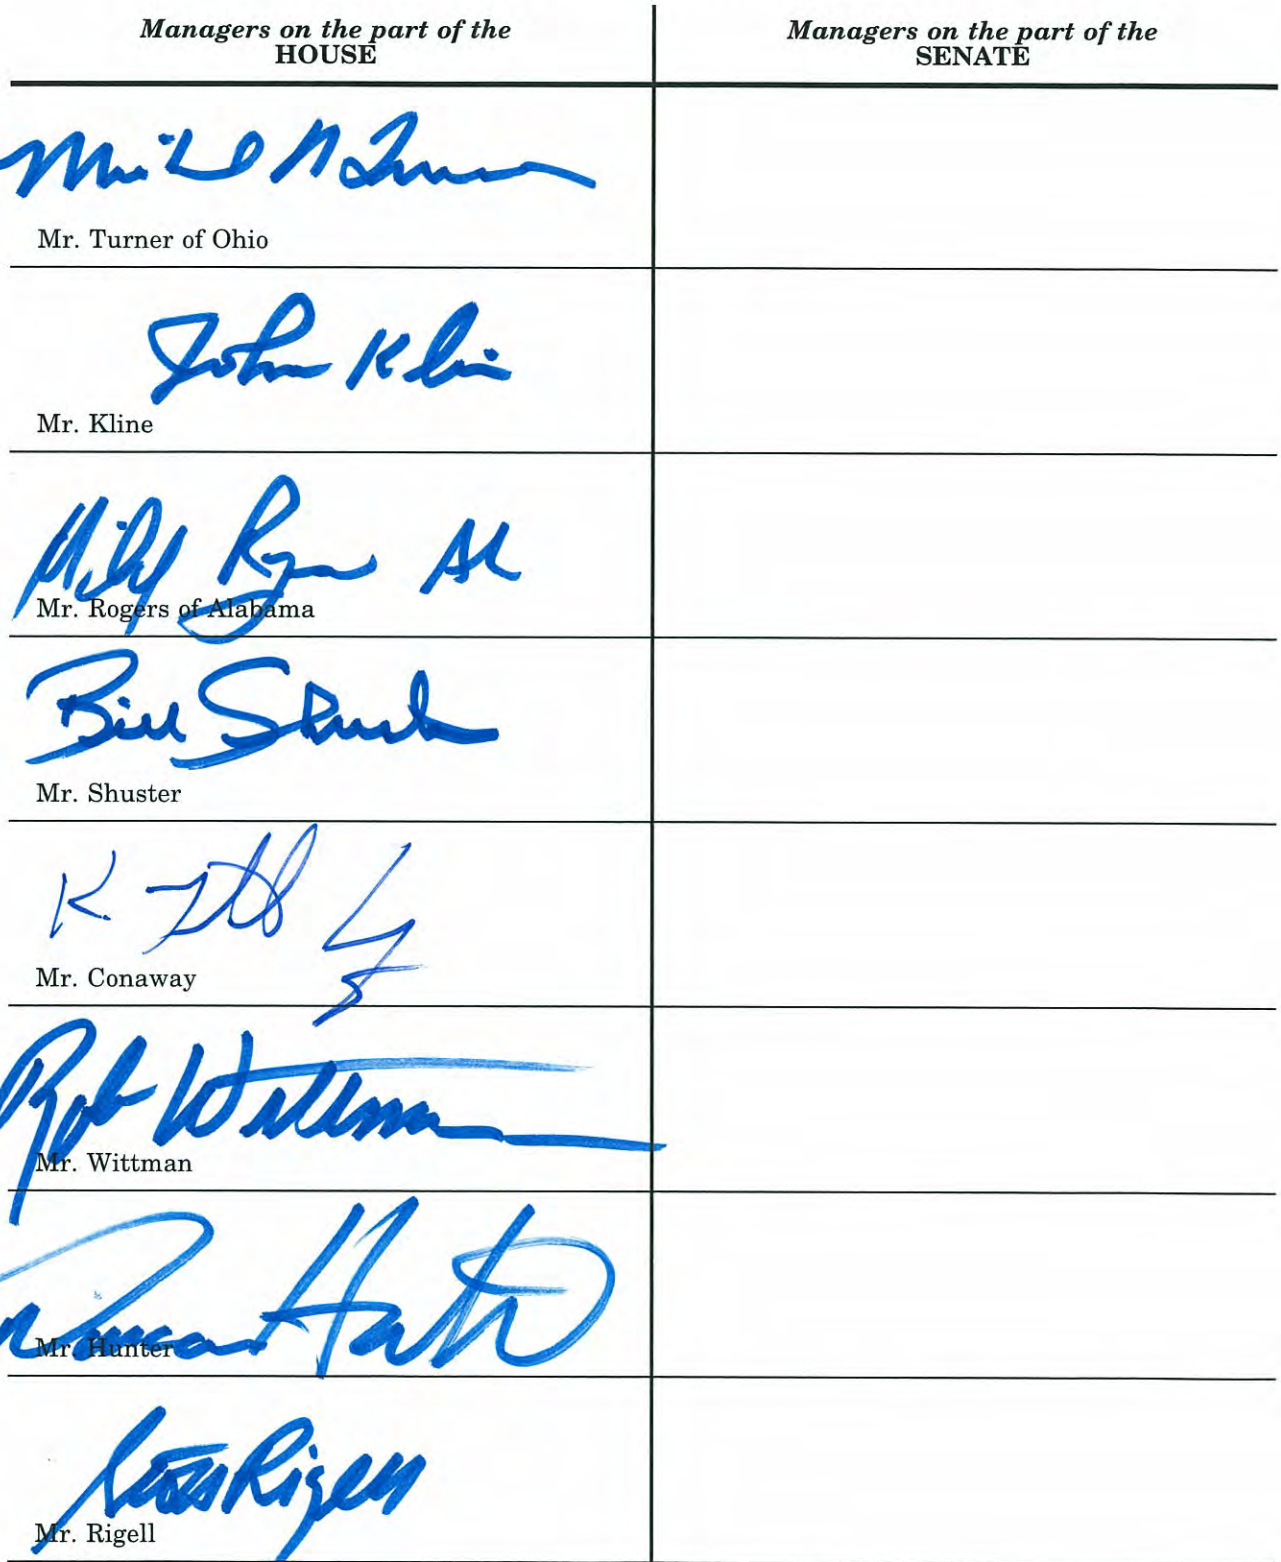 Managers on the part of the
HOUSE
Managers on the part of the
SENATE
Mr. Turner of Ohio
John Kline
Mr. Kline
Mr. Rogers of Alabama
Bill Shuster
Mr. Shuster
Mr. Conaway
Rob Wittman
Mr. Wittman
Duncan Hunter
Mr. Hunter
Scott Rigell
Mr. Rigell